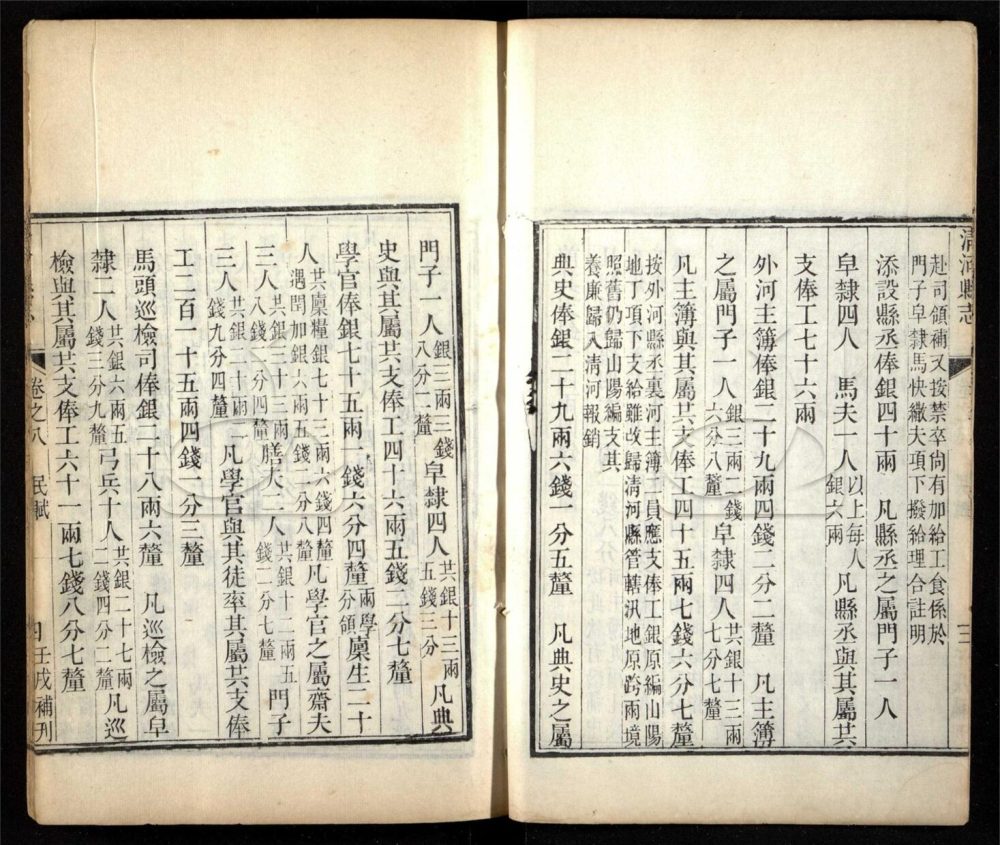 清河縣志
三
赴司領補又按禁卒尙有加給工食係於
門子皁隸馬快繖夫項下撥給理合註明
添設縣丞俸銀四十兩　凡縣丞之屬門子一人
皁隸四人　馬夫一人以上每人銀六兩凡縣丞與其屬共
支俸工七十六兩
外河主簿俸銀二十九兩四錢二分二釐　凡主簿
之屬門子一人銀三兩二錢六分八釐皁隸四人共銀十三兩七分七釐
凡主簿與其屬共支俸工四十五兩七錢六分七釐
按外河縣丞裏河主簿二員應支俸工銀原編山陽
地丁項下支給雖改歸清河縣管轄汛地原跨兩境
照舊仍歸山陽編支其
養廉歸入清河報銷
典史俸銀二十九兩六錢一分五釐　凡典史之屬
門子一人銀三兩三錢八分二釐皁隸四人共銀十三兩五錢三分凡典
史與其屬共支俸工四十六兩五錢二分七釐
學官俸銀七十五兩一錢六分四釐兩學分領廩生二十
人共廩糧銀七十三兩六錢四釐遇閏加銀六兩五錢一分八釐凡學官之屬齋夫
三人共銀三十三兩八錢一分四釐膳夫二人共銀十二兩五錢二分七釐門子
三人共銀二十兩二錢九分四釐凡學官與其徒率其屬共支俸
工二百一十五兩四錢一分三釐
馬頭巡檢司俸銀二十八兩六釐　凡巡檢之屬皁
隸二人共銀六兩五錢三分九釐弓兵十人共銀二十七兩二錢四分二釐凡巡
檢與其屬共支俸工六十一兩七錢八分七釐
卷之八　民賦
壬戌補刊